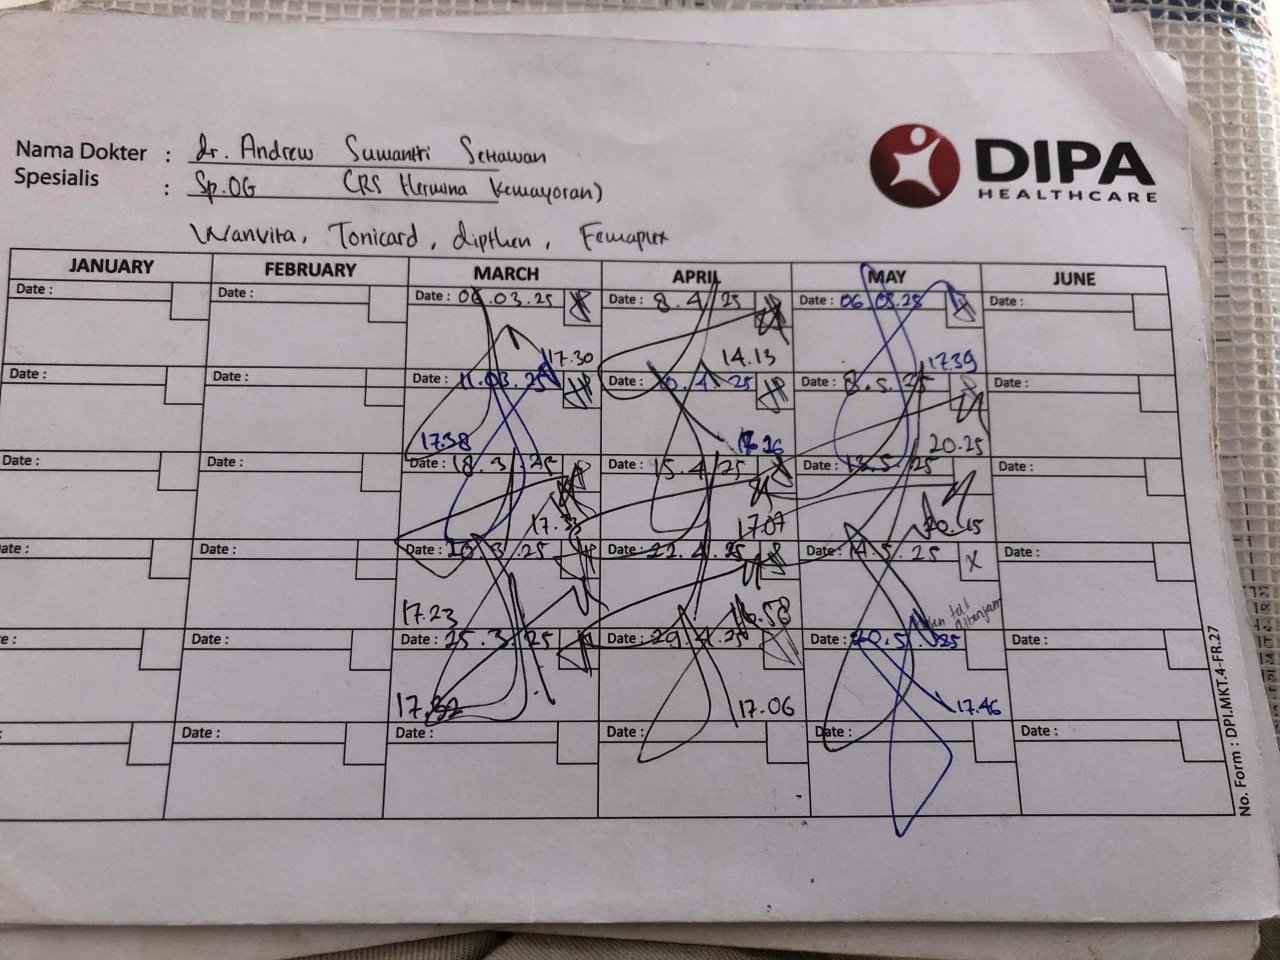 Nama Dokter : dr. Andrew Suwantri Setiawan
Spesialis : Sp.OG (RS Hermina Kemayoran)
DIPA
HEALTHCARE
Wanvita, Tonicard, dipthen, Femaplex
JANUARY FEBRUARY MARCH APRIL MAY JUNE
Date : Date : Date : 06.03.25 Date : 8.4.25 Date : 06.05.25 Date :
17.30 14.13 17.39
Date : Date : Date : 11.03.25 Date : 10.4.25 Date : 8.5.25 Date :
17.38 20.25
Date : Date : Date : 18.3.25 Date : 15.4.25 Date : 13.5.25 Date :
17.33 17.07 20.15
ate : Date : Date : 20.3.25 Date : 22.4.25 Date : 14.5.25 X Date :
17.23 16.58
e : Date : Date : 25.3.25 Date : 29.4.25 Date : 20.5.25 Date :
17.32 17.06 17.46
: Date : Date : Date : Date : Date :
No. Form : DPI.MKT.4-FR.27